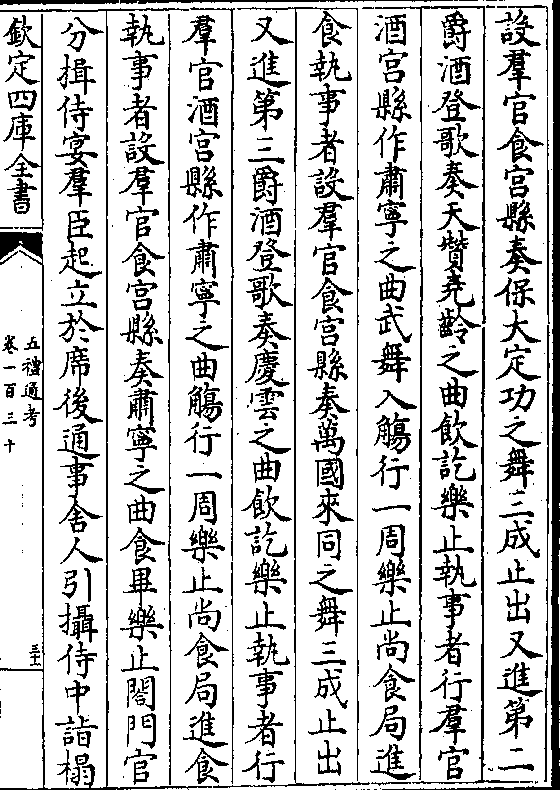 設羣官食宫縣奏保大定功之舞三成止出又進第二
爵酒登歌奏天贊堯齡之曲飲訖樂止執事者行羣官
酒宫縣作肅寧之曲武舞入觴行一周樂止尚食局進
食執事者設羣官食宫縣奏萬國來同之舞三成止出
又進第三爵酒登歌奏慶雲之曲飲訖樂止執事者行
羣官酒宫縣作肅寧之曲觴行一周樂止尚食局進食
執事者設羣官食宫縣奏肅寧之曲食畢樂止閤門官
分揖侍宴羣臣起立於席後通事舍人引攝侍中詣榻
欽定四庫全書
五禮通考
卷一百三十